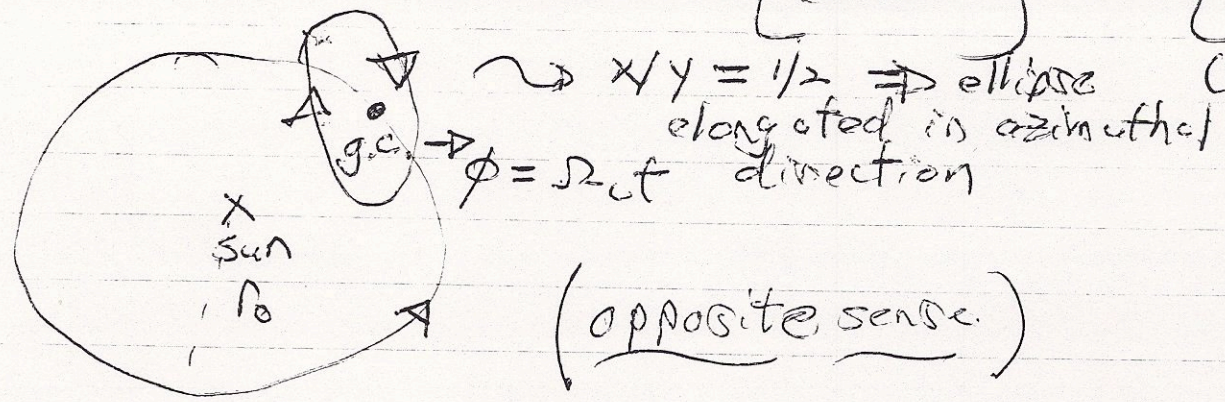 X/Y = 1/2 ⇒ ellipse
elongated in azimuthal
g.c. → ϕ = Ω₀t direction
X
sun
r₀
(opposite sense)